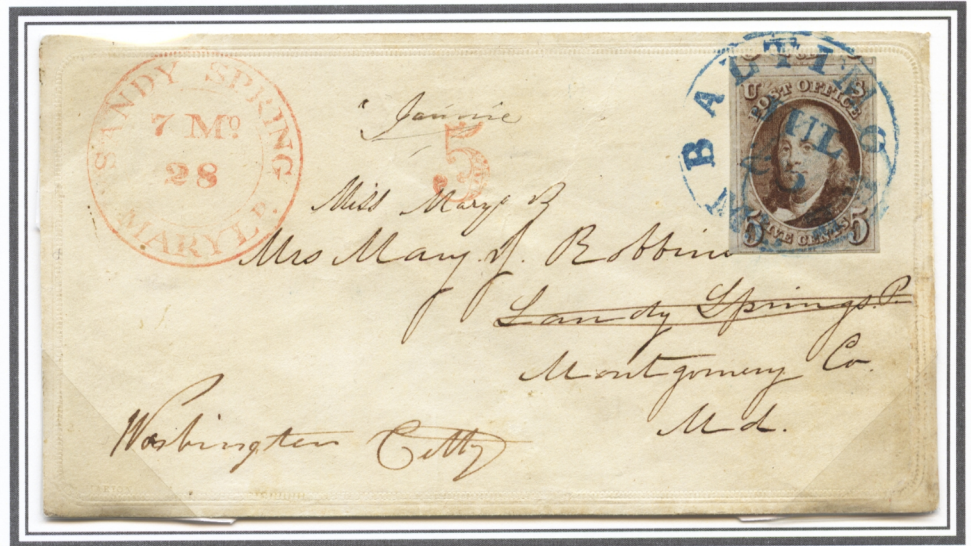 SANDY SPRING
7 Mo
28
MARYLD.
BALTIMO
JUL
U S
POST OFFICE
FIVE CENTS
5 5
5
Miss Mary B
Mrs Mary J. Robbins
Sandy Springs P.
Montgomery Co.
Md.
Washington Citty